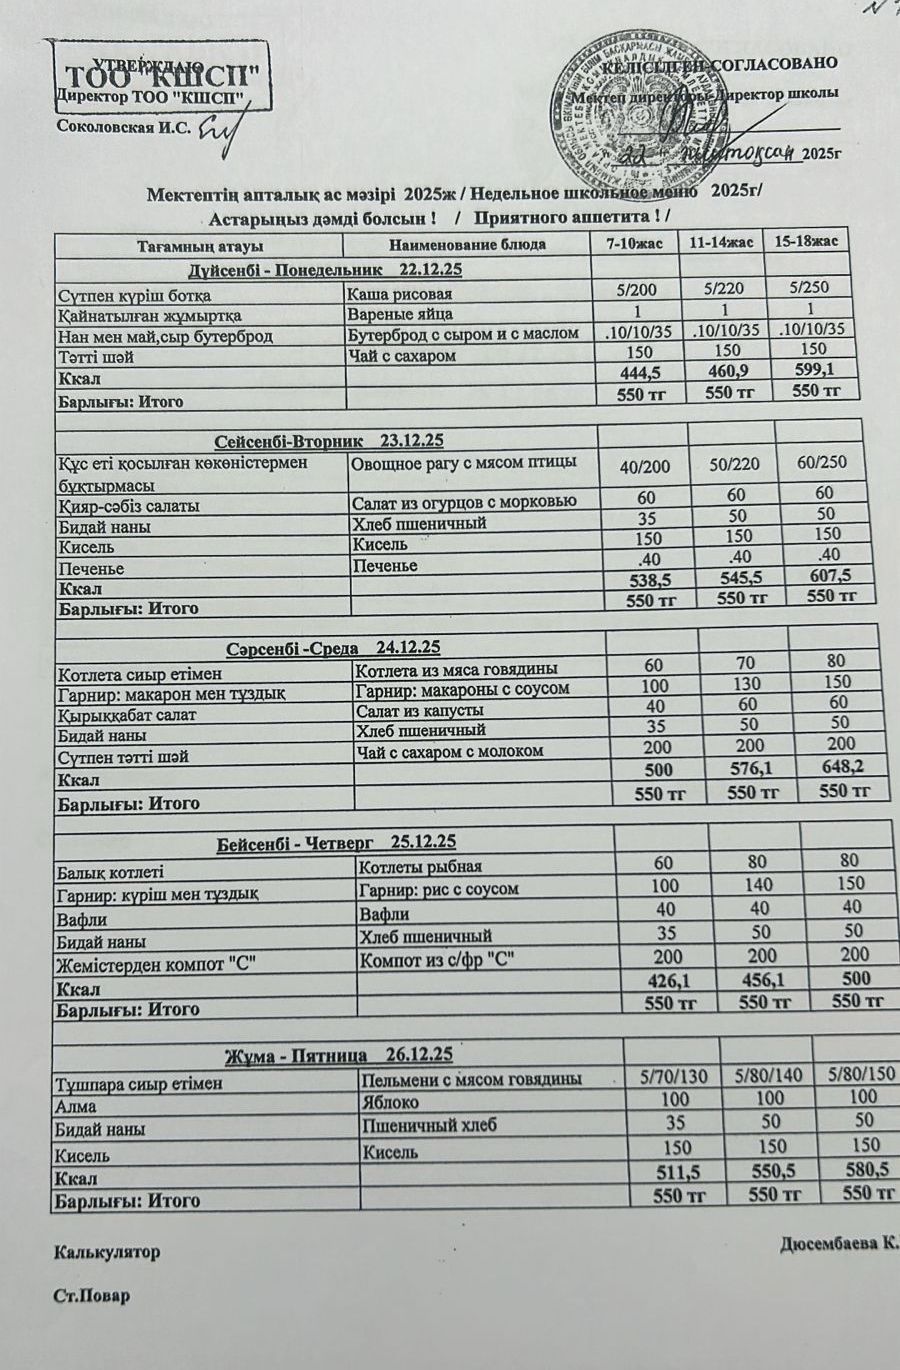 УТВЕРЖДАЮ
ТОО "КШСП"
Директор ТОО "КШСП"
Соколовская И.С.
КЕЛІСІЛГЕН-СОГЛАСОВАНО
Мектеп директоры-Директор школы
22 желтоқсан 2025г
Мектептің апталық ас мәзірі 2025ж / Недельное школьное меню 2025г/
Астарыңыз дәмді болсын ! / Приятного аппетита ! /
Тағамның атауы Наименование блюда 7-10жас 11-14жас 15-18жас
Дүйсенбі - Понедельник 22.12.25
Сүтпен күріш ботқа Каша рисовая 5/200 5/220 5/250
Қайнатылған жұмыртқа Вареные яйца 1 1 1
Нан мен май,сыр бутерброд Бутерброд с сыром и с маслом .10/10/35 .10/10/35 .10/10/35
Тәтті шәй Чай с сахаром 150 150 150
Ккал 444,5 460,9 599,1
Барлығы: Итого 550 тг 550 тг 550 тг
Сейсенбі-Вторник 23.12.25
Құс еті қосылған көкөністермен бұқтырмасы Овощное рагу с мясом птицы 40/200 50/220 60/250
Қияр-сәбіз салаты Салат из огурцов с морковью 60 60 60
Бидай наны Хлеб пшеничный 35 50 50
Кисель Кисель 150 150 150
Печенье Печенье .40 .40 .40
Ккал 538,5 545,5 607,5
Барлығы: Итого 550 тг 550 тг 550 тг
Сәрсенбі -Среда 24.12.25
Котлета сиыр етімен Котлета из мяса говядины 60 70 80
Гарнир: макарон мен тұздық Гарнир: макароны с соусом 100 130 150
Қырыққабат салат Салат из капусты 40 60 60
Бидай наны Хлеб пшеничный 35 50 50
Сүтпен тәтті шәй Чай с сахаром с молоком 200 200 200
Ккал 500 576,1 648,2
Барлығы: Итого 550 тг 550 тг 550 тг
Бейсенбі - Четверг 25.12.25
Балық котлеті Котлеты рыбная 60 80 80
Гарнир: күріш мен тұздық Гарнир: рис с соусом 100 140 150
Вафли Вафли 40 40 40
Бидай наны Хлеб пшеничный 35 50 50
Жемістерден компот "С" Компот из с/фр "С" 200 200 200
Ккал 426,1 456,1 500
Барлығы: Итого 550 тг 550 тг 550 тг
Жұма - Пятница 26.12.25
Тұшпара сиыр етімен Пельмени с мясом говядины 5/70/130 5/80/140 5/80/150
Алма Яблоко 100 100 100
Бидай наны Пшеничный хлеб 35 50 50
Кисель Кисель 150 150 150
Ккал 511,5 550,5 580,5
Барлығы: Итого 550 тг 550 тг 550 тг
Калькулятор Дюсембаева К.
Ст.Повар